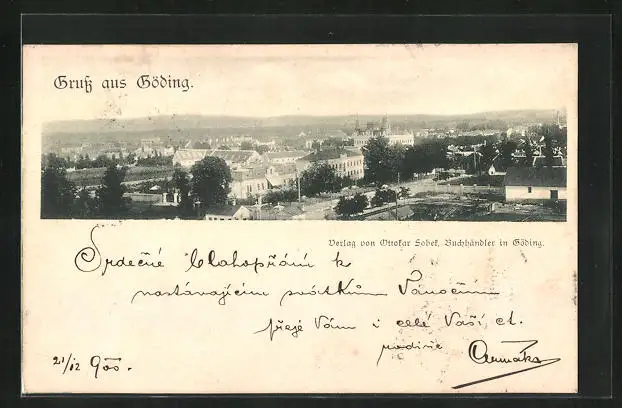 Gruß aus Göding.
Verlag von Ottokar Sobek, Buchhändler in Göding.
Srdečné blahopřání k
nastávajícím svátkům Vánočním
přeje Vám i celé Vaší ct.
rodině
21/12 900.